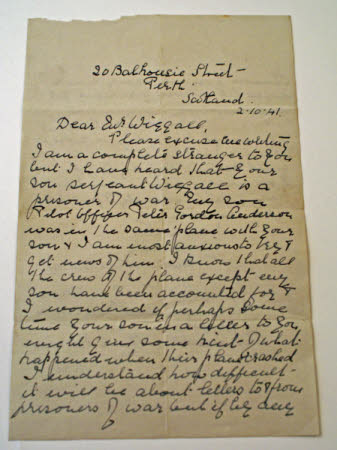 20 Balhousie Street
Perth
Scotland.
2.10.41.
Dear Mr Wiggall,
Please excuse me writing
I am a complete stranger to you
but I have heard that your
son Sergeant Wiggall is a
prisoner of war. My son
Pilot Officer Peter Gordon Anderson
was in the same plane with your
son & I am most anxious to try &
get news of him. I know that all
the crew of the plane except my
son have been accounted for &
I wondered if perhaps some
time your son in a letter to you
might give some hint of what
happened when their plane crashed
I understand how difficult
it will be about letters to & from
prisoners of war but if by any